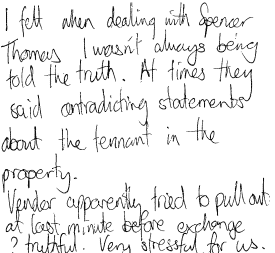 I felt when dealing with Spencer
Thomas I wasn't always being
told the truth. At times they
said contradicting statements
about the tennant in the
property.
Vendor apparently tried to pull out
at last minute before exchange
? truthful. Very stressful for us.